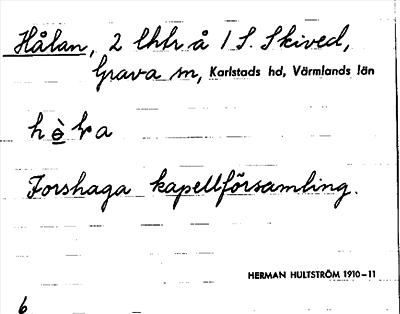 Hålan, 2 lhtr å 1 S. Skived,
Grava sn, Karlstads hd, Värmlands län
Forshaga kapellförsamling.
HERMAN HULTSTRÖM 1910-11
6